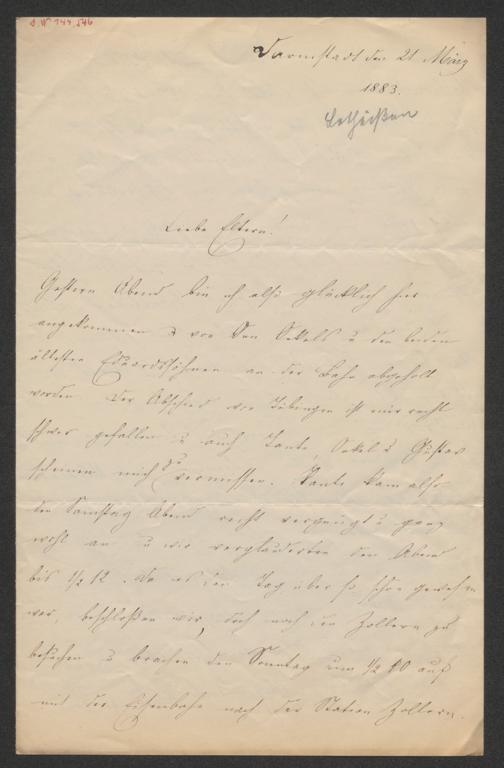 Darmstadt den 21 März
1883.
Liebe Eltern!
Gestern Abend bin ich also glücklich hier
angekommen u von den Onkels u den beiden
ältesten Eduardssöhnen an der Bahn abgeholt
worden. Der Abschied von Tübingen ist mir recht
schwer gefallen u auch Tante, Onkel u Gustav
scheinen mich zu vermissen. Tante kam also
den Samstag Abend recht vergnügt u ganz
wohl an u wir verplauderten den Abend
bis 1/2 12. Da es den Tag über so schön gewesen
war, beschloßen wir, doch noch den Zollern zu
besuchen u brachen den Sonntag um 1/2 10 auf
mit der Eisenbahn nach der Station Zollern.